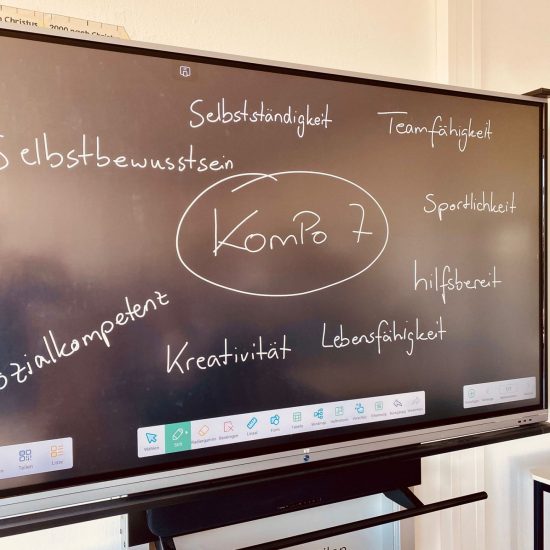 Christus 2000 nach Chris
Selbstständigkeit
Teamfähigkeit
Selbstbewusstsein
Sportlichkeit
KomPo 7
hilfsbereit
ozialkompetenz
Kreativität
Lebensfähigkeit
Wählen
Stift
Lineal
Form
Tabelle
Teilen
Liste